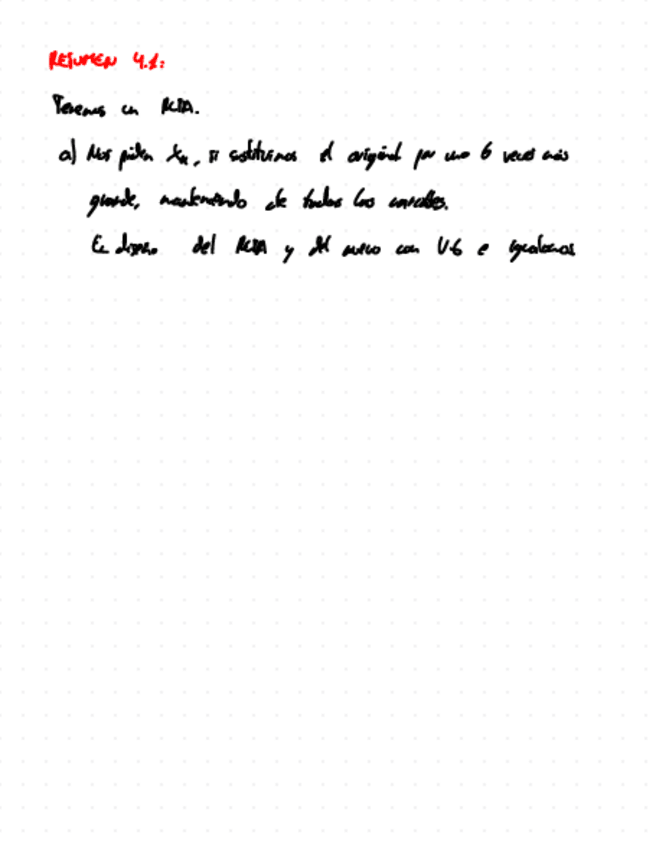 RESUMEN 4.1:
Tenemos un RCTA.
a) Nos piden XA, si sustituimos el original por uno 6 veces más
grande, manteniendo de todas las variables.
Ec diseño del RCTA y del nuevo con V·6 e igualamos